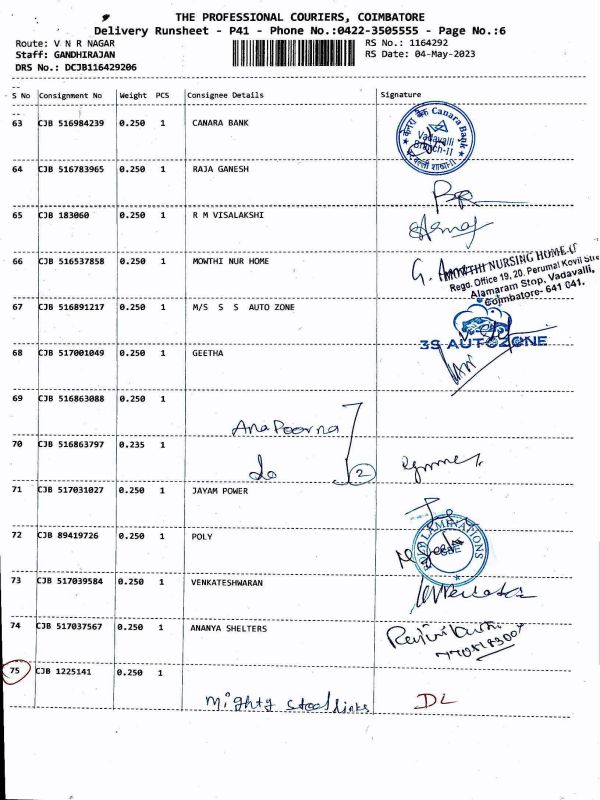 THE PROFESSIONAL COURIERS, COIMBATORE
Delivery Runsheet - P41 - Phone No.:0422-3505555 - Page No.:6
Route: V N R NAGAR RS No.: 1164292
Staff: GANDHIRAJAN RS Date: 04-May-2023
DRS No.: DCJB116429206
S No Consignment No Weight PCS Consignee Details Signature
63 CJB 516984239 0.250 1 CANARA BANK
केनरा बैंक Canara Bank
Vadavalli
Branch-II
64 CJB 516783965 0.250 1 RAJA GANESH
65 CJB 183060 0.250 1 R M VISALAKSHI
66 CJB 516537858 0.250 1 MOWTHI NUR HOME
MOWTHI NURSING HOME
Regd. Office 19, 20. Perumal Kovil Stre
Alamaram Stop, Vadavalli,
Coimbatore- 641 041.
67 CJB 516891217 0.250 1 M/S S S AUTO ZONE
3S AUTOZONE
68 CJB 517001049 0.250 1 GEETHA
69 CJB 516863088 0.250 1
AnaPoorna
70 CJB 516863797 0.235 1
do 2
71 CJB 517031027 0.250 1 JAYAM POWER
72 CJB 89419726 0.250 1 POLY
LAMINATIONS
73 CJB 517039584 0.250 1 VENKATESHWARAN
74 CJB 517037567 0.250 1 ANANYA SHELTERS
75 CJB 1225141 0.250 1
Mighty steel links DL